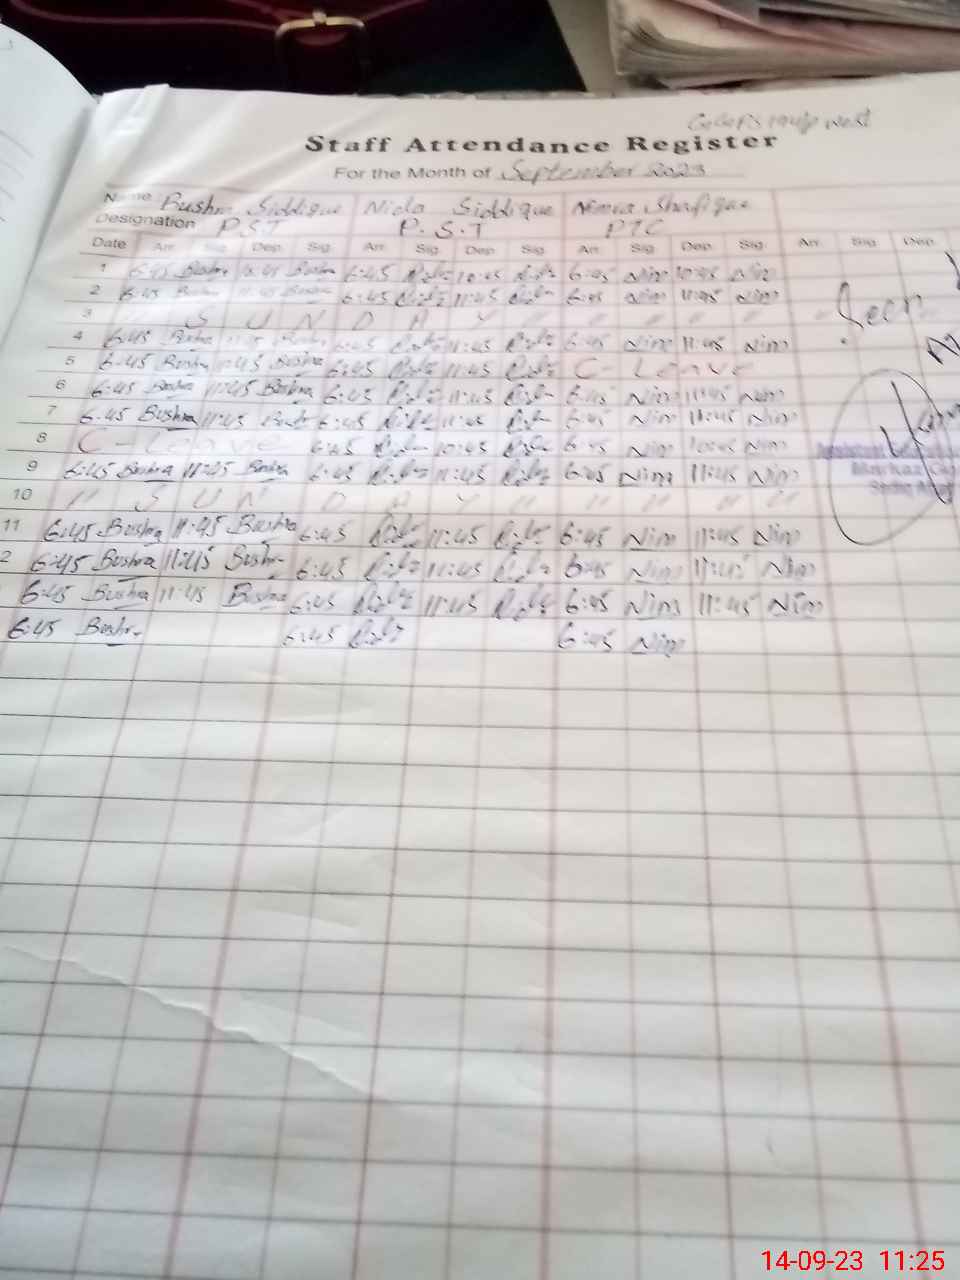 Staff Attendance Register
For the Month of September 2023
Name Bushra Siddique Nida Siddique Nimra Shafique
Designation P.S.T P.S.T PTC
Date Arr. Sig. Dep. Sig. Arr. Sig. Dep. Sig. Arr. Sig. Dep. Sig. Arr. Sig. Dep.
1 6:45 Bushra 10:45 Bushra 6:45 10:45 6:45 Nim 10:45 Nim
2 6:45 Bushra 11:45 Bushra 6:45 11:45 6:45 Nim 11:45 Nim
3 " S U N D A Y " " " " "
Seen
4 6:45 Bushra 11:45 Bushra 6:45 11:45 6:45 Nim 11:45 Nim
5 6:45 Bushra 11:45 Bushra 6:45 11:45 C - Leave
6 6:45 Bushra 11:45 Bushra 6:45 11:45 6:45 Nim 11:45 Nim
7 6:45 Bushra 11:45 Bushra 6:45 11:45 6:45 Nim 11:45 Nim
8 C - Leave 6:45 10:45 6:45 Nim 10:45 Nim
9 6:45 Bushra 11:45 Bushra 6:45 11:45 6:45 Nim 11:45 Nim
10 " S U N D A Y " " " " "
11 6:45 Bushra 11:45 Bushra 6:45 11:45 6:45 Nim 11:45 Nim
2 6:45 Bushra 11:45 Bushra 6:45 11:45 6:45 Nim 11:45 Nim
6:45 Bushra 11:45 Bushra 6:45 11:45 6:45 Nim 11:45 Nim
6:45 Bushra 6:45 6:45 Nim
14-09-23 11:25